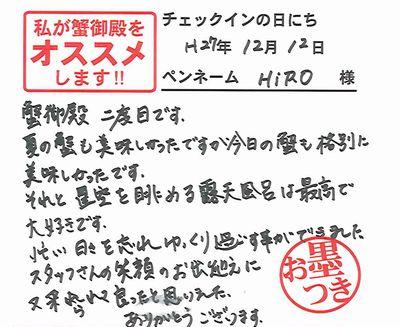 私が蟹御殿を
オススメ
します!!
チェックインの日にち
H27年 12月 12日
ペンネーム HiRO 様
蟹御殿 二度目です。
夏の蟹も美味しかったですか今日の蟹も格別に
美味しかったです。
それと星空を眺める露天風呂は最高で
大好きです。
忙しい日々を忘れゆっくり過す事ができました
スタッフさんの笑顔のお出迎えに
又来れられて良ったと思いました。
ありがとうございます。
お墨つき